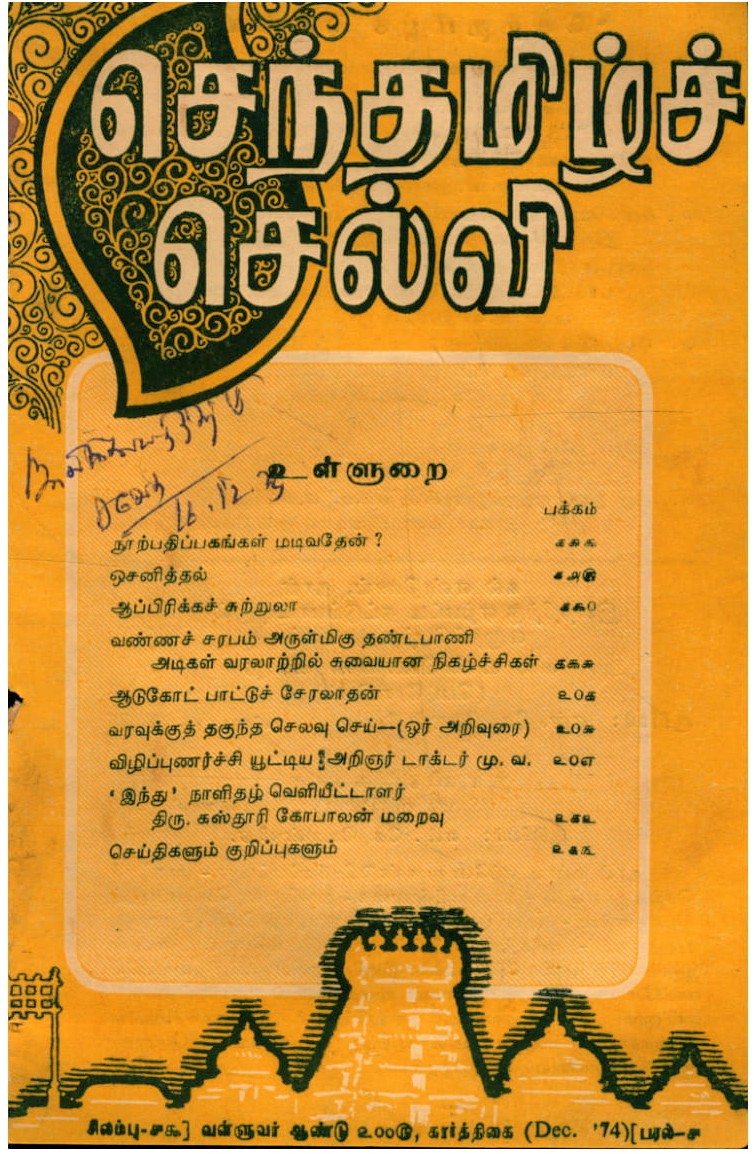 செந்தமிழ்ச்
செல்வி
உள்ளுறை
பக்கம்
நூற்பதிப்பகங்கள் மடிவதேன் ?
ஒசனித்தல் ௧௮௫
ஆப்பிரிக்கச் சுற்றுலா ௧௯௦
வண்ணச் சரபம் அருள்மிகு தண்டபாணி
அடிகள் வரலாற்றில் சுவையான நிகழ்ச்சிகள் ௧௯௬
ஆடுகோட் பாட்டுச் சேரலாதன் ௨௦௧
வரவுக்குத் தகுந்த செலவு செய்—(ஓர் அறிவுரை) ௨௦௬
விழிப்புணர்ச்சி யூட்டிய அறிஞர் டாக்டர் மு. வ. ௨௦௭
‘இந்து’ நாளிதழ் வெளியீட்டாளர்
திரு. கஸ்தூரி கோபாலன் மறைவு ௨௧௨
செய்திகளும் குறிப்புகளும் ௨௧௩
சிலம்பு-௪௯] வள்ளுவர் ஆண்டு ௨௦௦௫, கார்த்திகை (Dec. '74)[பரல்-௪